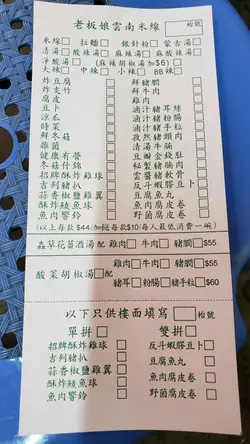 老板娘雲南米線 枱號
米線□ 拉麵□ 銀針粉□ 蒙古湯□
清湯□ 酸辣湯□ 麻辣湯□ 麻酸辣湯□
淨酸湯□ (麻辣胡椒湯加$6)□
大辣□ 中辣□ 小辣□ BB辣□
炸豆腐□ 鮮鯪魚肉□
炸支竹□ 鮮牛肉□
腐皮□ 雞肉□
豆卜□ 滷汁豬耳絲□
涼瓜□ 滷汁豬粉腸□
時菜□ 滷汁豬手粒□
鮮冬菇□ 孜然豬頸肉□
雜菌□ 清湯牛腩□
健康有營□ 豆瓣金錢肚□
冬菇什錦□ 秘製豬腩肉□
招牌酥炸雞球□ 雲醬豬軟骨□
吉列豬扒□ 反斗蝦膠豆卜□
蒜香椒鹽雞翼□ 豆腐魚丸□
酥炸鯪魚球□ 魚肉腐皮卷□
魚肉響鈴□ 野菌腐皮卷□
(以上每款$44/加配每款$10/每人最低消費一碗)
蟲草花菌酒湯□配 雞肉□ 牛肉□ 豬膶□ $55
酸菜胡椒湯□配 雞肉□ 牛肉□ 豬膶□ $55
豬耳□ 粉腸□ 豬手粒□ $60
以下只供樓面填寫 枱號
單拼□ 雙拼□
招牌酥炸雞球□ 反斗蝦膠豆卜□
吉列豬扒□ 豆腐魚丸□
蒜香椒鹽雞翼□ 魚肉腐皮卷□
酥炸鯪魚球□ 野菌腐皮卷□
魚肉響鈴□